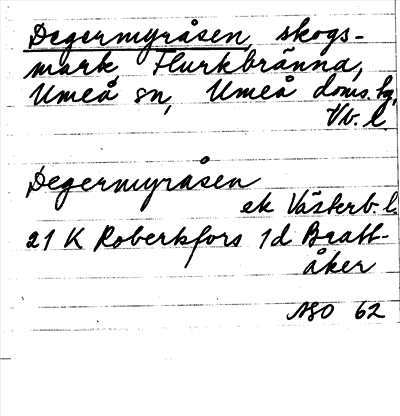 Degermyråsen, skogs-
mark, Flurkbränna,
Umeå sn, Umeå doms.hg,
Vb. l.
Degermyråsen
ek Västerb. l.
21 K Robertsfors 1d Bratt-
åker
NSO 62